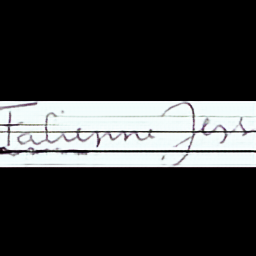 Fabienne Jess